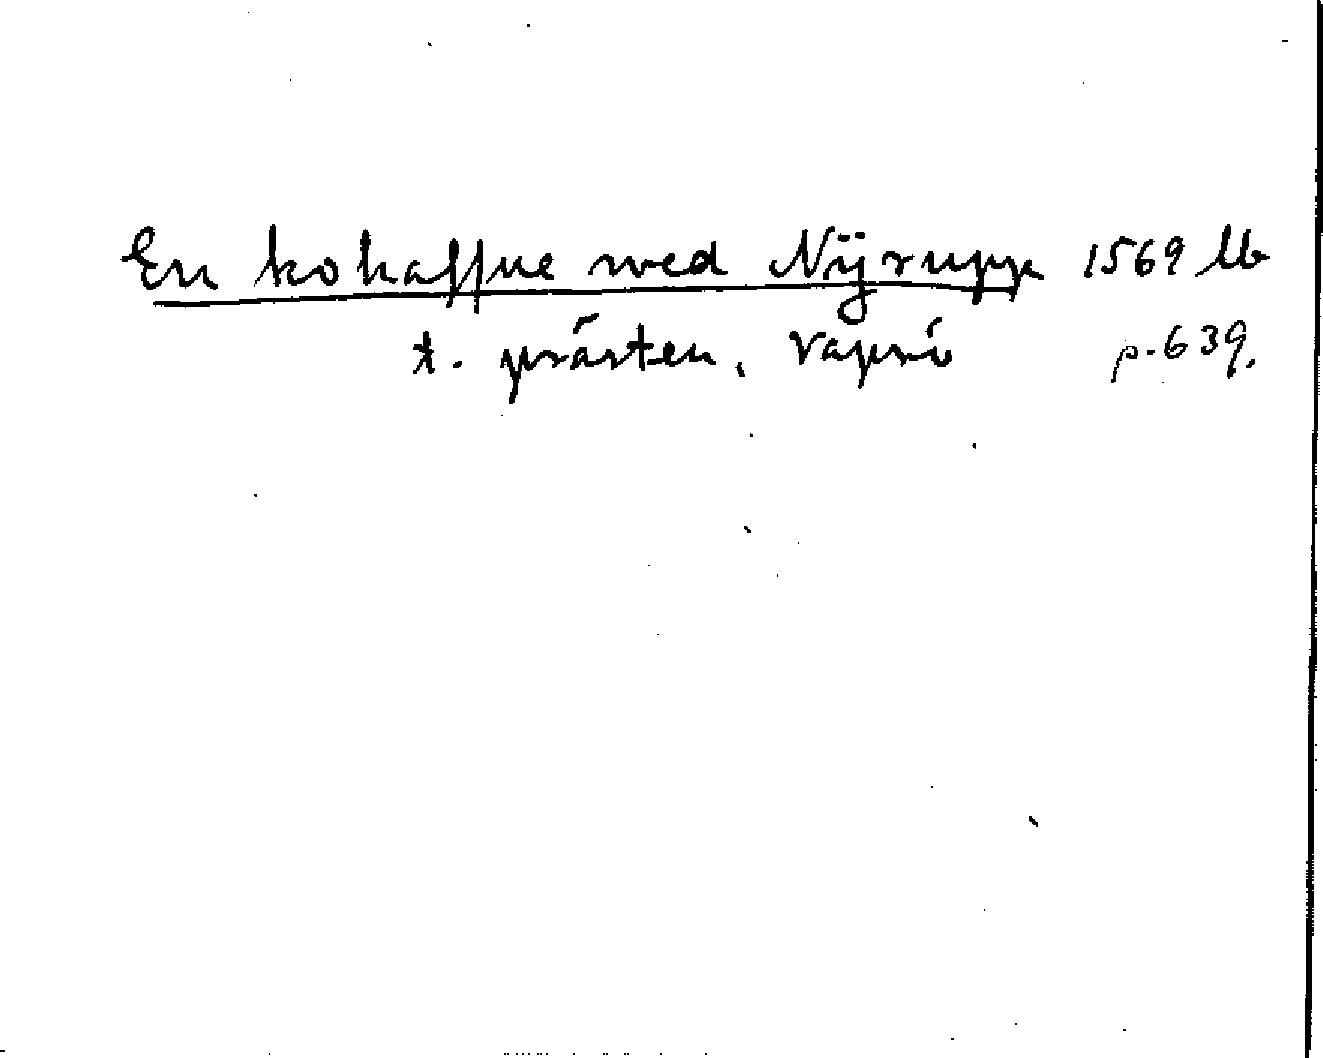 En kohaffue wed Nÿrupp 1569 lb
t. prästen. Vapnö p. 639.